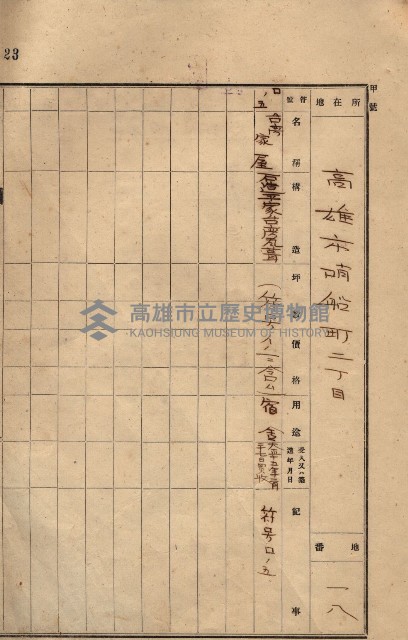 23
甲號
所在地
高雄市哨船町二丁目
地番
一八
符號
名稱
構造
坪數
價格
用途
受入又ハ築造年月日
記事
ロノ五
台湾家屋
(符号イノ二ニ含ム)
宿舍
符号ロノ五
高雄市立歷史博物館
KAOHSIUNG MUSEUM OF HISTORY